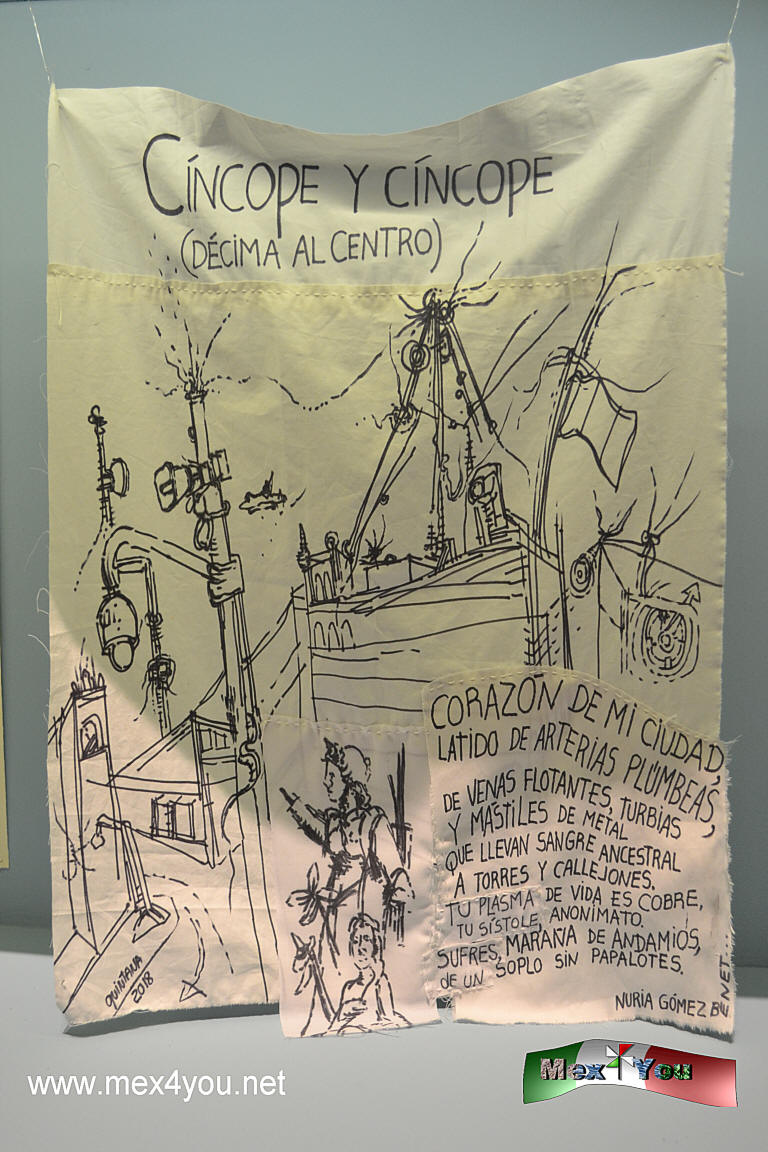 CÍNCOPE Y CÍNCOPE
(DÉCIMA AL CENTRO)
CORAZÓN DE MI CIUDAD,
LATIDO DE ARTERIAS PLÚMBEAS,
DE VENAS FLOTANTES, TURBIAS
Y MÁSTILES DE METAL
QUE LLEVAN SANGRE ANCESTRAL
A TORRES Y CALLEJONES.
TU PLASMA DE VIDA ES COBRE,
TU SÍSTOLE, ANONIMATO.
SUFRES, MARAÑA DE ANDAMIOS,
DE UN SOPLO SIN PAPALOTES.
NURIA GÓMEZ BENET...
QUINTANA
2018
www.mex4you.net
Mex4You